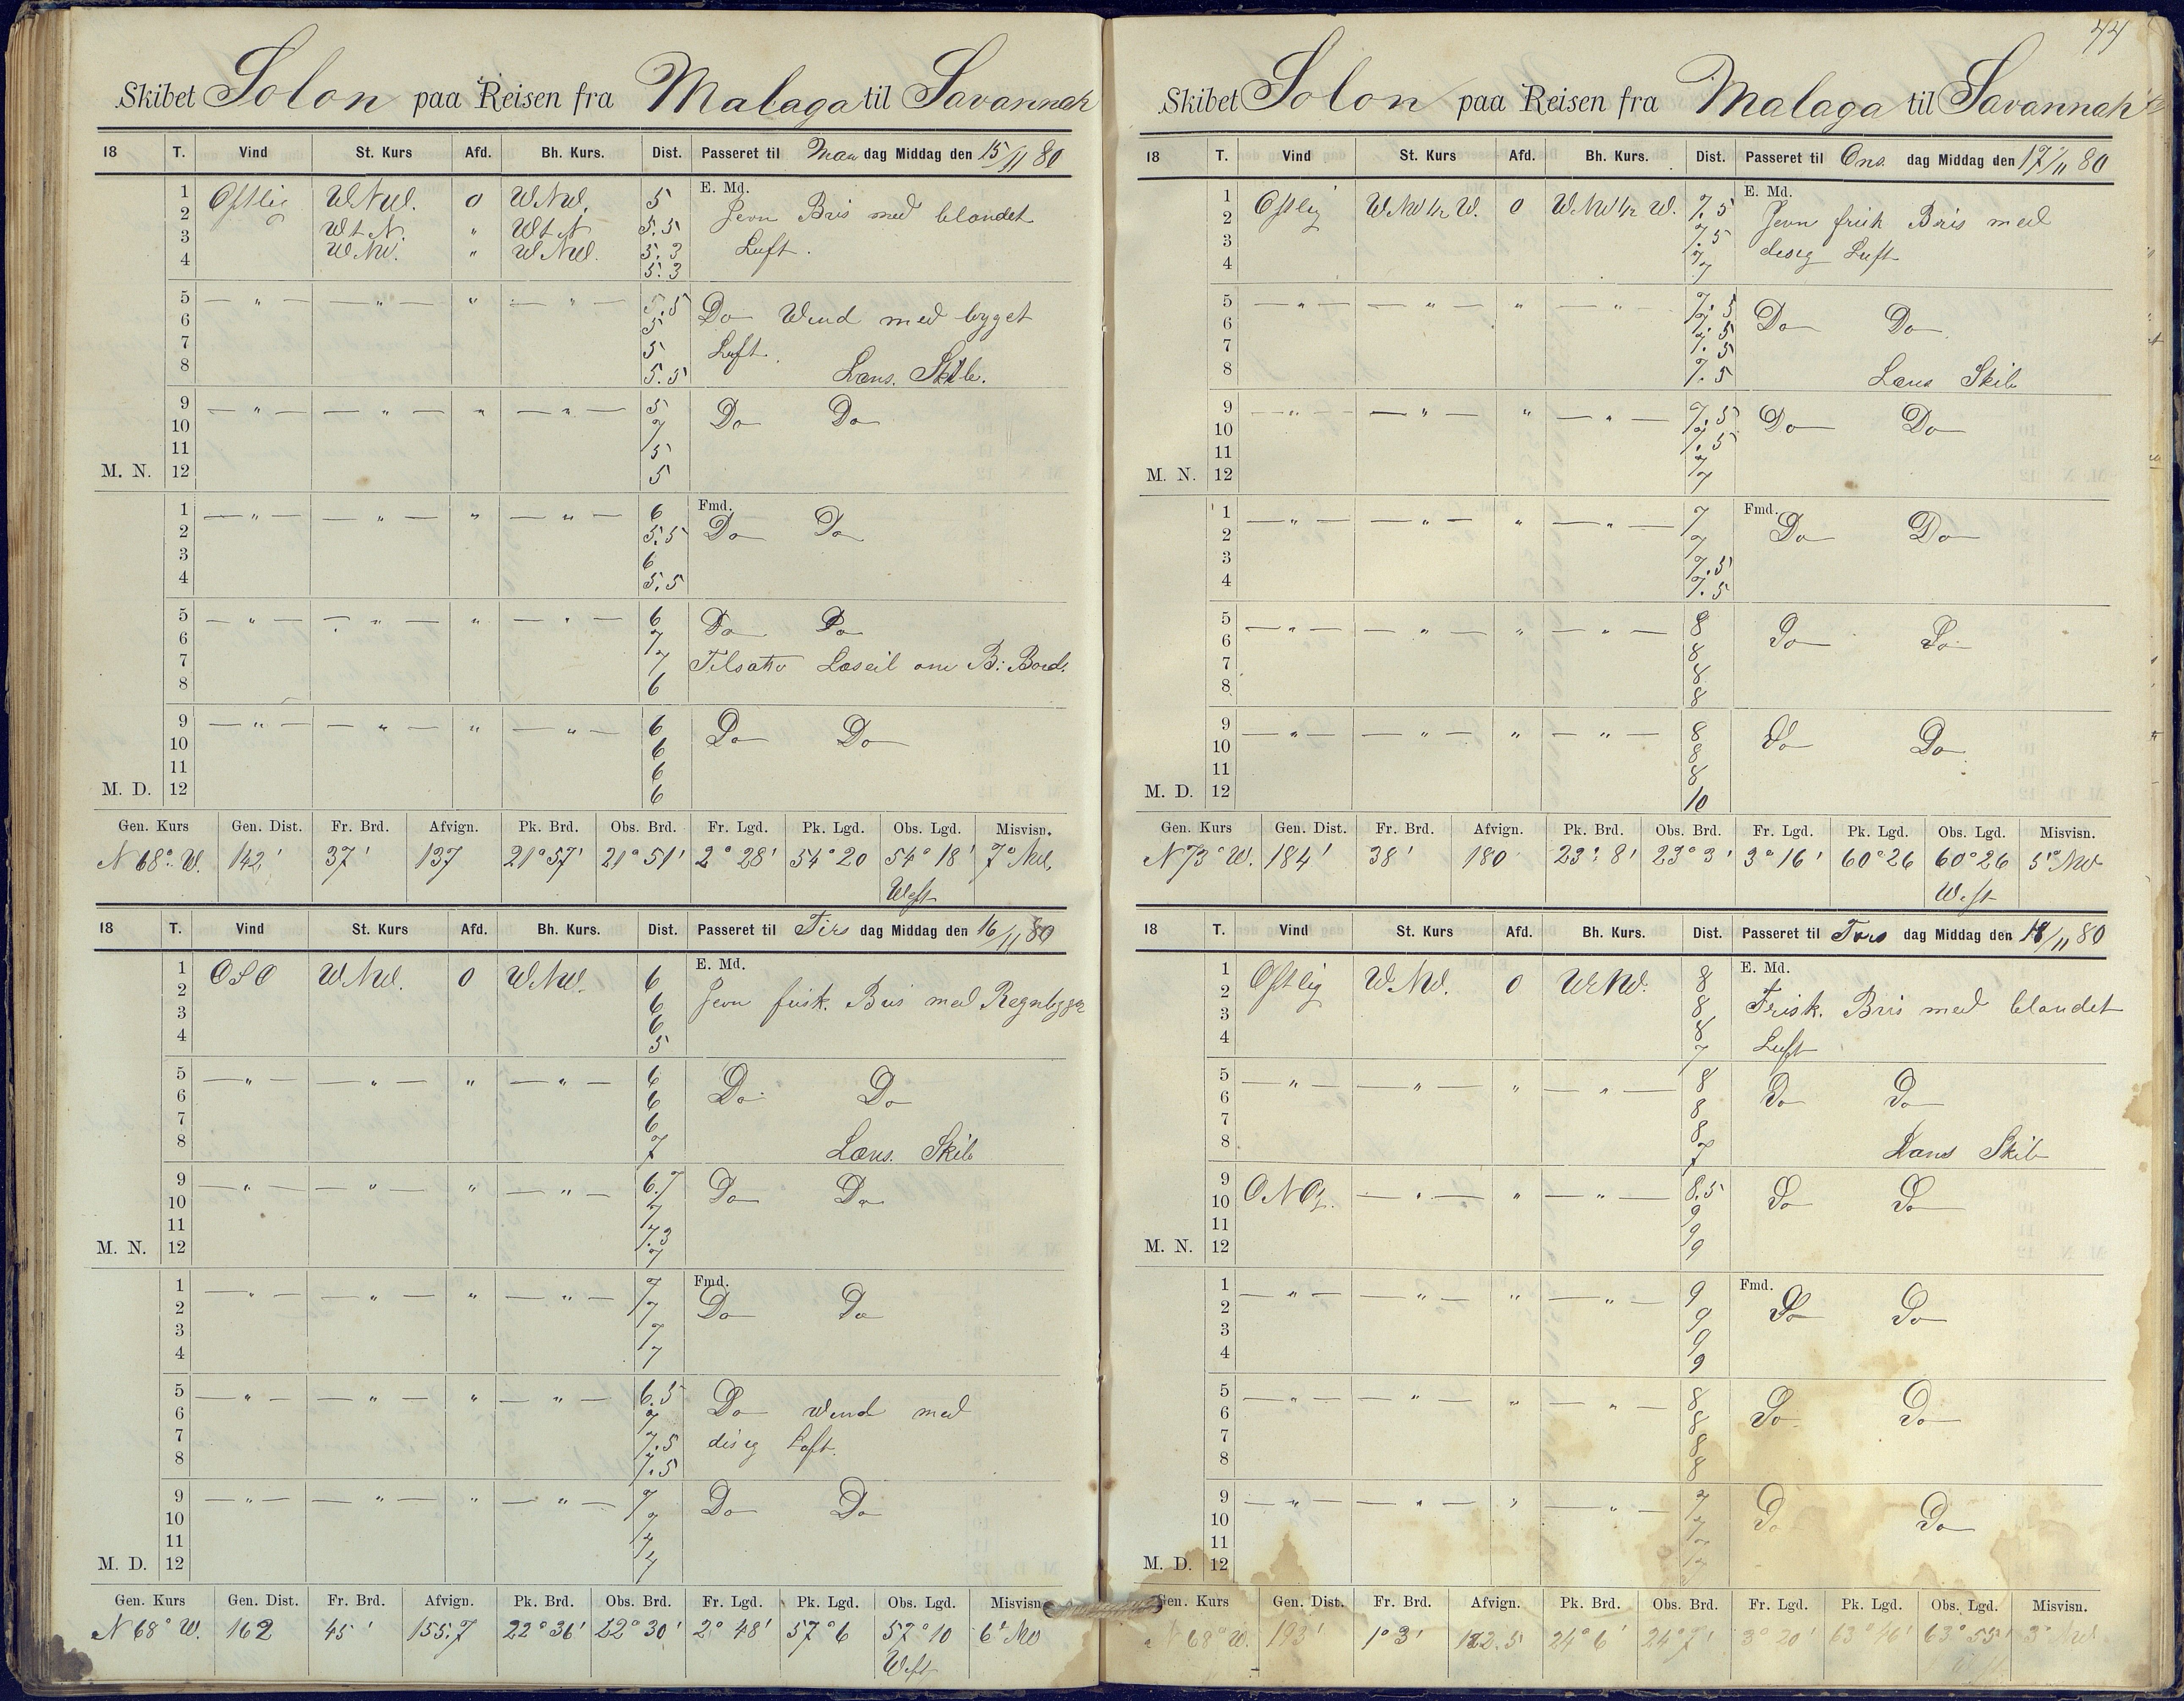 44
Skibet Solon paa Reisen fra Malaga til Savannah
18 T. Vind St. Kurs Afd. Bh. Kurs. Dist. Passeret til Man dag Middag den 15/11 80
E. Md.
1 Ostlig WNW. 0 WNW. 5 Jevn Bris med blandet
2 WtN. " WtN 5.5 Luft.
3 WNW. " WNW. 5.3
4 5.3
5 — " — — " — " — " — 5.5 Do Wind med byget
6 5 Luft.
7 5
8 5.5 Læns. Skib.
9 — " — — " — " — " — 5 Do Do
10 7
11 5
M. N. 12 5
Fmd.
1 — " — — " — " — " — 6 Do Do
2 5.5
3 6
4 5.5
5 — " — — " — " — " — 6 Do Do
6 7
7 7 Tilsatte Læseil om B: Bord.
8 6
9 — " — — " — " — " — 6 Do Do
10 6
11 6
M. D. 12 6
Gen. Kurs Gen. Dist. Fr. Brd. Afvign. Pk. Brd. Obs. Brd. Fr. Lgd. Pk. Lgd. Obs. Lgd. Misvisn.
N 68° W. 142' 37' 137 21°57' 21°51' 2°28' 54°20 54°18' 7° NW.
West
18 T. Vind St. Kurs Afd. Bh. Kurs. Dist. Passeret til Tirs dag Middag den 16/11 80
E. Md.
1 OSO WNW. 0 WNW. 6
2 6 Jevn frisk. Bris med Regnbyger
3 6
4 5
5 — " — — " — " — " — 6 Do Do
6 6
7 6
8 7 Læns. Skib
9 — " — — " — " — " — 6.7 Do Do
10 7
11 7.3
M. N. 12 7
Fmd.
1 — " — — " — " — " — 7 Do Do
2 7
3 7
4 7
5 — " — — " — " — " — 6.5 Do Wind med
6 7
7 7.5 disig Luft.
8 7.5
9 — " — — " — " — " — 7 Do Do
10 7
11 7
M. D. 12 7
Gen. Kurs Gen. Dist. Fr. Brd. Afvign. Pk. Brd. Obs. Brd. Fr. Lgd. Pk. Lgd. Obs. Lgd. Misvisn.
N 68° W. 162 45' 155.7 22°36' 22°30' 2°48' 57°6 57°10 6° NW
West
Skibet Solon paa Reisen fra Malaga til Savannah
18 T. Vind St. Kurs Afd. Bh. Kurs. Dist. Passeret til Ons. dag Middag den 17/11 80
E. Md.
1 Ostlig WNW½W. 0 WNW½W. 7.5
2 7.5 Jevn frisk Bris med
3 7 disig Luft
4 7
5 — " — — " — " — " — 7.5 Do Do
6 7.5
7 7.5
8 7.5 Læns Skib
9 — " — — " — " — " — 7.5 Do Do
10 7.5
11 7
M. N. 12 7
Fmd.
1 — " — — " — " — " — 7 Do Do
2 7
3 7.5
4 7.5
5 — " — — " — " — " — 8 Do Do
6 8
7 8
8 8
9 — " — — " — " — " — 8 Do Do
10 8
11 8
M. D. 12 10
Gen. Kurs Gen. Dist. Fr. Brd. Afvign. Pk. Brd. Obs. Brd. Fr. Lgd. Pk. Lgd. Obs. Lgd. Misvisn.
N 73° W. 184' 38' 180 23°8' 23°3' 3°16' 60°26 60°26 5° NW
West
18 T. Vind St. Kurs Afd. Bh. Kurs. Dist. Passeret til Tors dag Middag den 18/11 80
E. Md.
1 Ostlig WNW. 0 WNW. 8
2 8 Frisk. Bris med blandet
3 8
4 7 Luft
5 — " — — " — " — " — 8 Do Do
6 8
7 8
8 7 Læns Skib
9 ONO — " — " — " — 8.5 Do Do
10 9
11 9
M. N. 12 9
Fmd.
1 — " — — " — " — " — 9 Do Do
2 9
3 9
4 9
5 — " — — " — " — " — 8 Do Do
6 8
7 8
8 8
9 — " — — " — " — " — 7 Do Do
10 7
11 7
M. D. 12
Gen. Kurs Gen. Dist. Fr. Brd. Afvign. Pk. Brd. Obs. Brd. Fr. Lgd. Pk. Lgd. Obs. Lgd. Misvisn.
N 68° W. 193' 1°3' 182.5 24°6' 24°7' 3°20' 63°46' 63°55' 3° NW